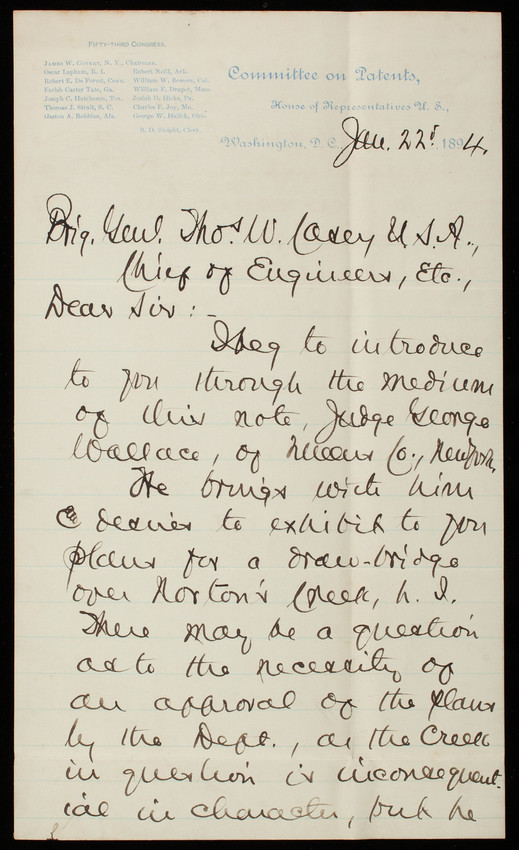 FIFTY-THIRD CONGRESS.
JAMES W. COVERT, N. Y., CHAIRMAN.
Oscar Lapham, R. I. Robert Neill, Ark.
Robert E. De Forest, Conn. William W. Bowers, Cal.
Farish Carter Tate, Ga. William F. Draper, Mass.
Joseph C. Hutcheson, Tex. Josiah D. Hicks, Pa.
Thomas J. Strait, S. C. Charles F. Joy, Mo.
Gaston A. Robbins, Ala. George W. Hulick, Ohio.
Clerk.
Committee on Patents,
House of Representatives U. S.,
Washington, D. C., Jan. 22d, 1894.
Brig. Genl. Thos. W. Casey U.S.A.,
Chief of Engineers, Etc.,
Dear Sir:-
I beg to introduce
to you through the medium
of this note, Judge George
Wallace, of Queens Co., New York.
He brings with him
& desires to exhibit to you
plans for a draw-bridge
over Norton's Creek, L. I.
There may be a question
as to the necessity of
an approval of the plans
by the Dept., as the Creek
in question is inconsequent-
ial in character, but he